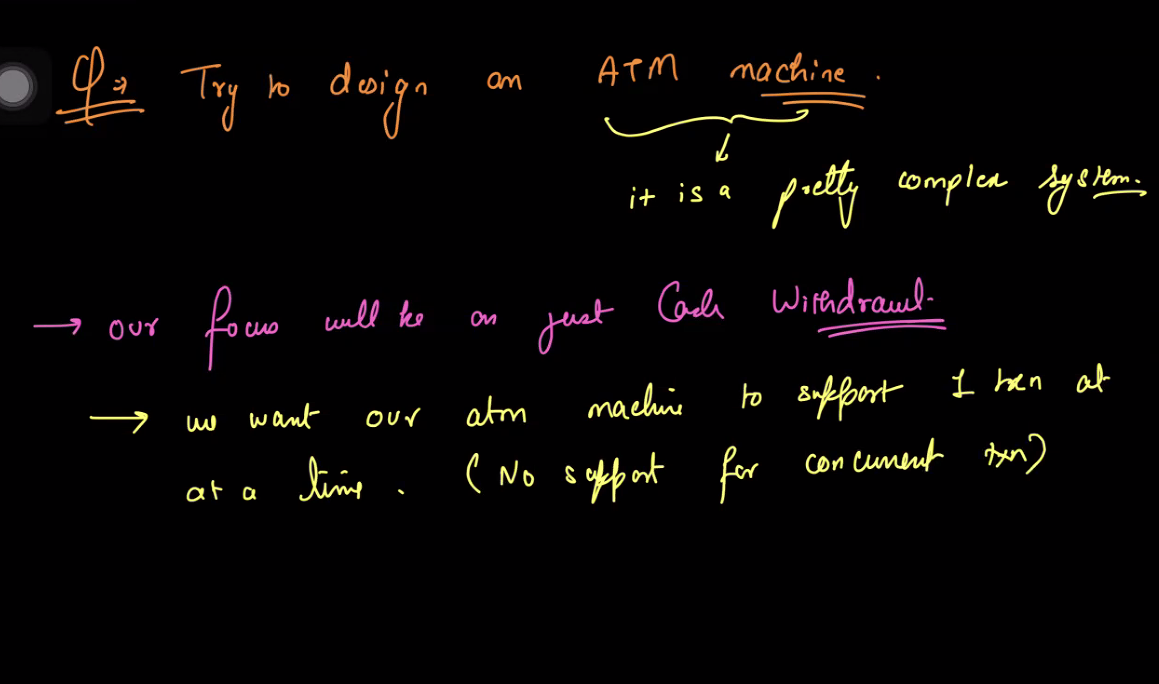 Q→ Try to design an ATM machine.
it is a pretty complex system.
→ our focus will be on just Cash Withdrawl.
→ we want our atm machine to support 1 txn at
at a time. (No support for concurrent txn)